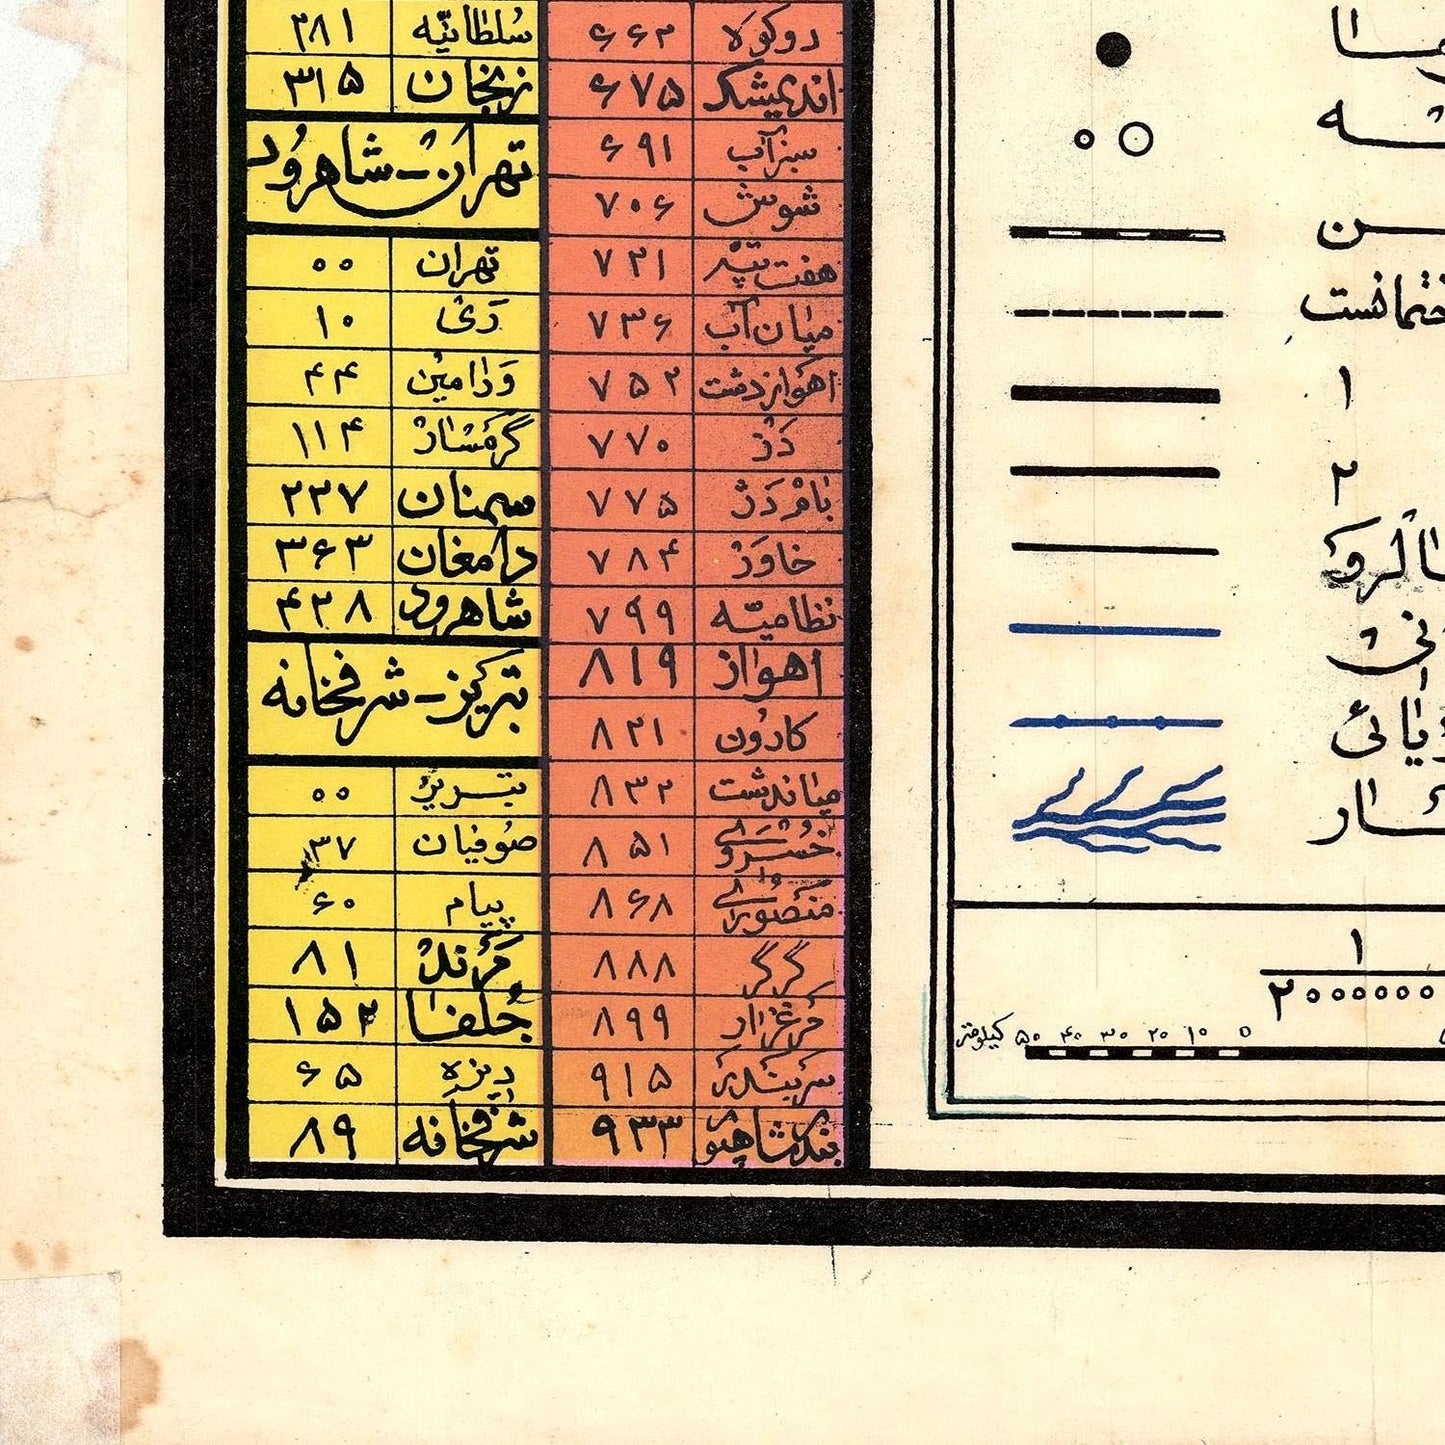 دوکوه ۶۶۲
اندیمشک ۶۷۵
سبزآب ۶۹۱
شوش ۷۰۶
هفت تپه ۷۲۱
میان آب ۷۳۶
اهواز دشت ۷۵۲
دژ ۷۷۰
بامدژ ۷۷۵
خاور ۷۸۴
نظامیه ۷۹۹
اهواز ۸۱۹
کارون ۸۲۱
میاندشت ۸۳۲
خسروی ۸۵۱
منصوری ۸۶۸
گرگر ۸۸۸
مرغزار ۸۹۹
سربندر ۹۱۵
بندرشاهپور ۹۳۳
سلطانیه ۲۸۱
زنجان ۳۱۵
تهران-شاهرود
تهران ۰۰
ری ۱۰
ورامین ۴۴
گرمسار ۱۱۴
سمنان ۲۲۷
دامغان ۳۶۳
شاهرود ۴۲۸
تبریز-شرفخانه
تبریز ۰۰
صوفیان ۳۷
پیام ۶۰
مرند ۸۱
جلفا ۱۵۲
دیزه ۶۵
شرفخانه ۸۹
۱
۲
۱
۲۰۰۰۰۰۰
کیلومتر ۵۰ ۴۰ ۳۰ ۲۰ ۱۰ ۰